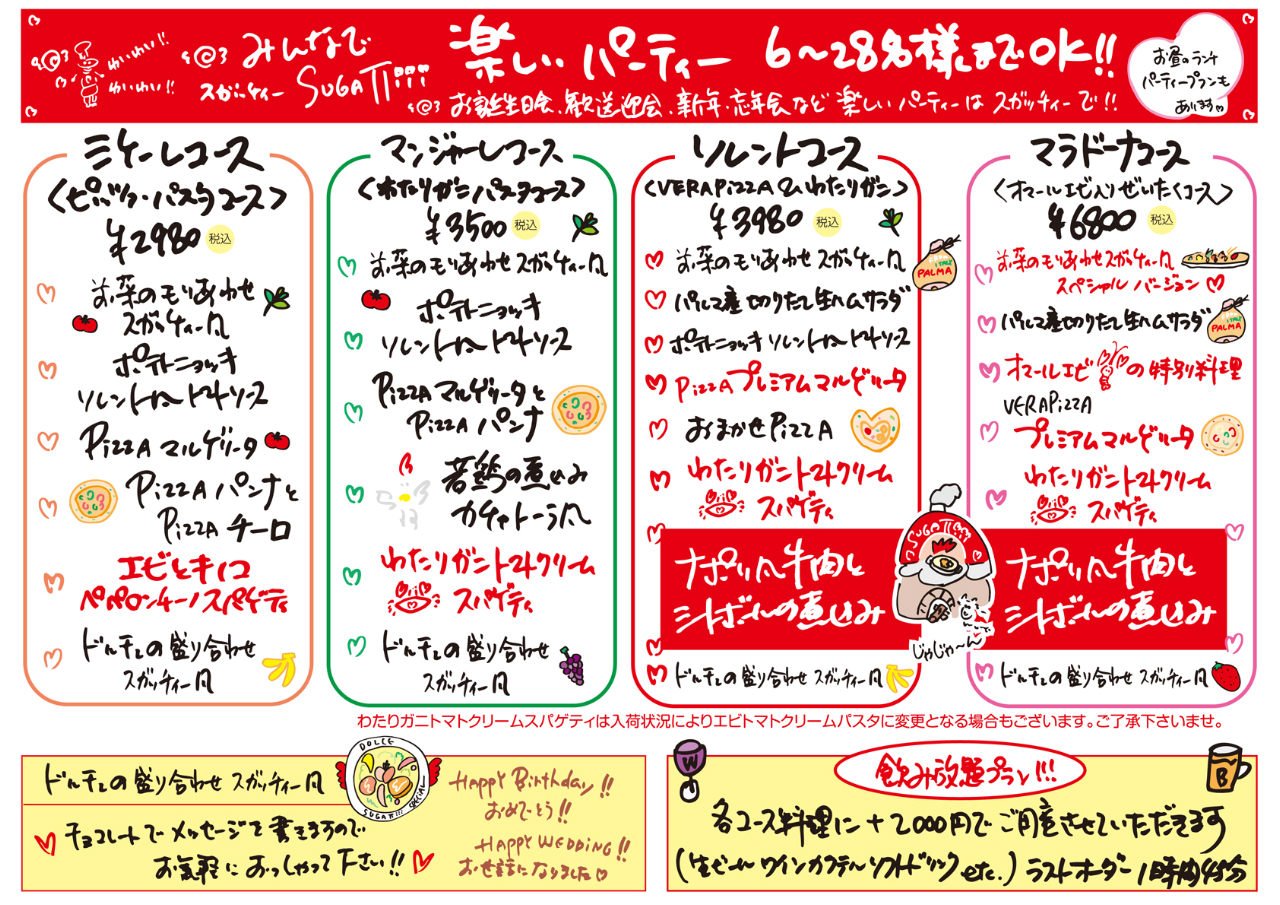 わいわい!!
わいわい!!
みんなで
スガッティー SUGATTiii
楽しいパーティー 6〜28名様までOK!!
お誕生日会、歓送迎会、新年、忘年会など楽しいパーティーはスガッティーで!!
お昼のランチ
パーティープランも
あります
ミケーレコース
<ピッツァ・パスタコース>
¥2980 税込
お菜のもりあわせ
スガッティー風
ポテトニョッキ
ソレント風トマトソース
PizzA マルゲリータ
PizzA パンナと
PizzA チーロ
エビとキノコ
ペペロンチーノスパゲティ
ドルチェの盛り合わせ
スガッティー風
マンジャーレコース
<わたりガニパスタコース>
¥3500 税込
お菜のもりあわせ スガッティー風
ポテトニョッキ
ソレント風トマトソース
PizzA マルゲリータと
PizzA パンナ
若鶏の煮込み
カチャトーラ風
わたりガニトマトクリーム
スパゲティ
ドルチェの盛り合わせ
スガッティー風
ソレントコース
<VERA PizzA &わたりガニ>
¥3980 税込
お菜のもりあわせ スガッティー風
PALMA
パルマ産切りたて生ハムサラダ
ポテトニョッキ ソレント風トマトソース
PizzA プレミアムマルゲリータ
おまかせPizzA
わたりガニトマトクリーム
スパゲティ
ナポリ風牛肉と
シャンボールの煮込み
ドルチェの盛り合わせ スガッティー風
マラドーナコース
<オマールエビ入りぜいたくコース>
¥6800 税込
お菜のもりあわせスガッティー風
スペシャル バージョン
パルマ産切りたて生ハムサラダ
PALMA
オマールエビの特別料理
VERA PizzA
プレミアムマルゲリータ
わたりガニトマトクリーム
スパゲティ
SUGATTiii
じゃじゃ〜ん
ナポリ風牛肉と
シャンボールの煮込み
ドルチェの盛り合わせ スガッティー風
わたりガニトマトクリームスパゲティは入荷状況によりエビトマトクリームパスタに変更となる場合もございます。ご了承下さいませ。
ドルチェの盛り合わせ スガッティー風
DOLCE
SUGATTiii SPECIAL
チョコレートでメッセージを書きますので
お気軽におっしゃって下さい!!
HAPPY Birthday!!
おめでとう!!
HAPPY WEDDING!!
お世話になりました
W
飲み放題プラン!!!
B
各コース料理に+2000円でご用意させていただきます
(生ビール ワイン カクテル ソフトドリンク etc.) ラストオーダー 1時間45分